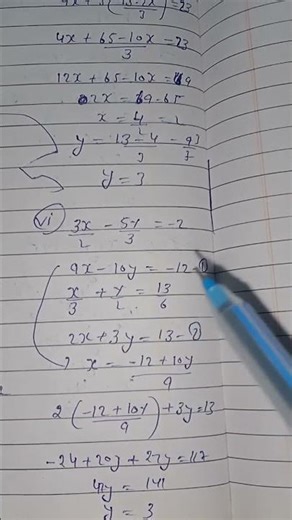 4x + 65-10x/3 = 23
12x + 65-10x = 69
2x = 69-65
x = 4/2 = 2
y = 13-4/3 = 9/3
y = 3
vi) 3x/2 - 5y/3 = -2
9x - 10y = -12 - ①
x/3 + y/2 = 13/6
2x + 3y = 13 - ②
x = -12 + 10y/9
2(-12 + 10y/9) + 3y = 13
-24 + 20y + 27y = 117
47y = 141
y = 3